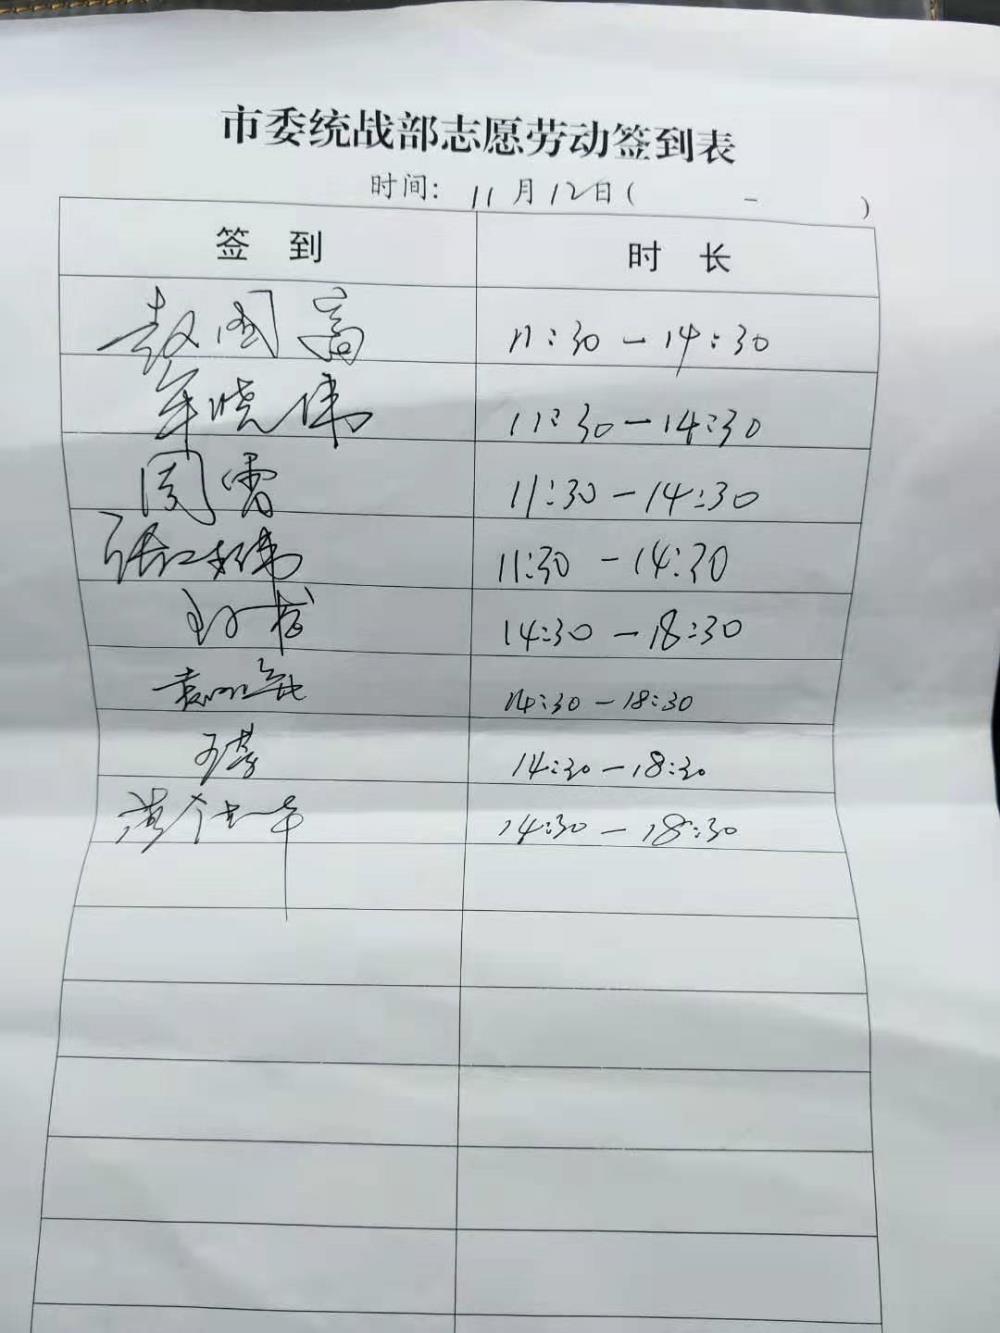 市委统战部志愿劳动签到表
时间: 11月12日( - )
签 到 时 长
赵国富 11:30-14:30
年晓伟 11:30-14:30
周雷 11:30-14:30
张红伟 11:30-14:30
14:30-18:30
袁 14:30-18:30
王 14:30-18:30
黄 14:30-18:30